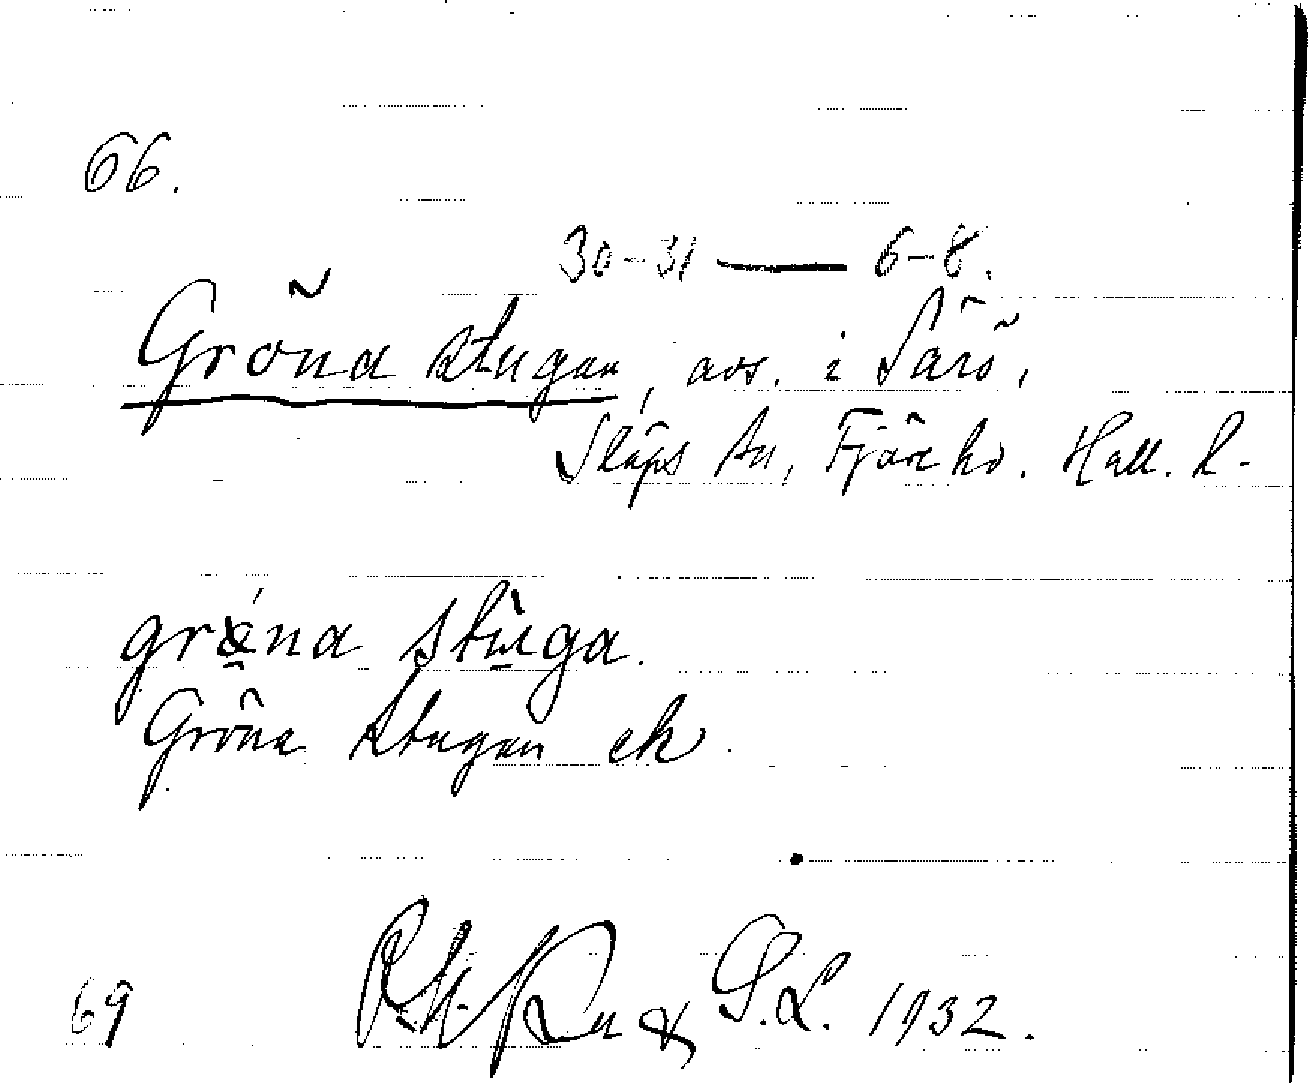 66.
30-31 — 6-8.
Gröna stugan, avs. i Särö,
Släps sn, Fjäre hd. Hall. l.
gröna stùga.
Gröna stugan ek
69 & G.L. 1932.